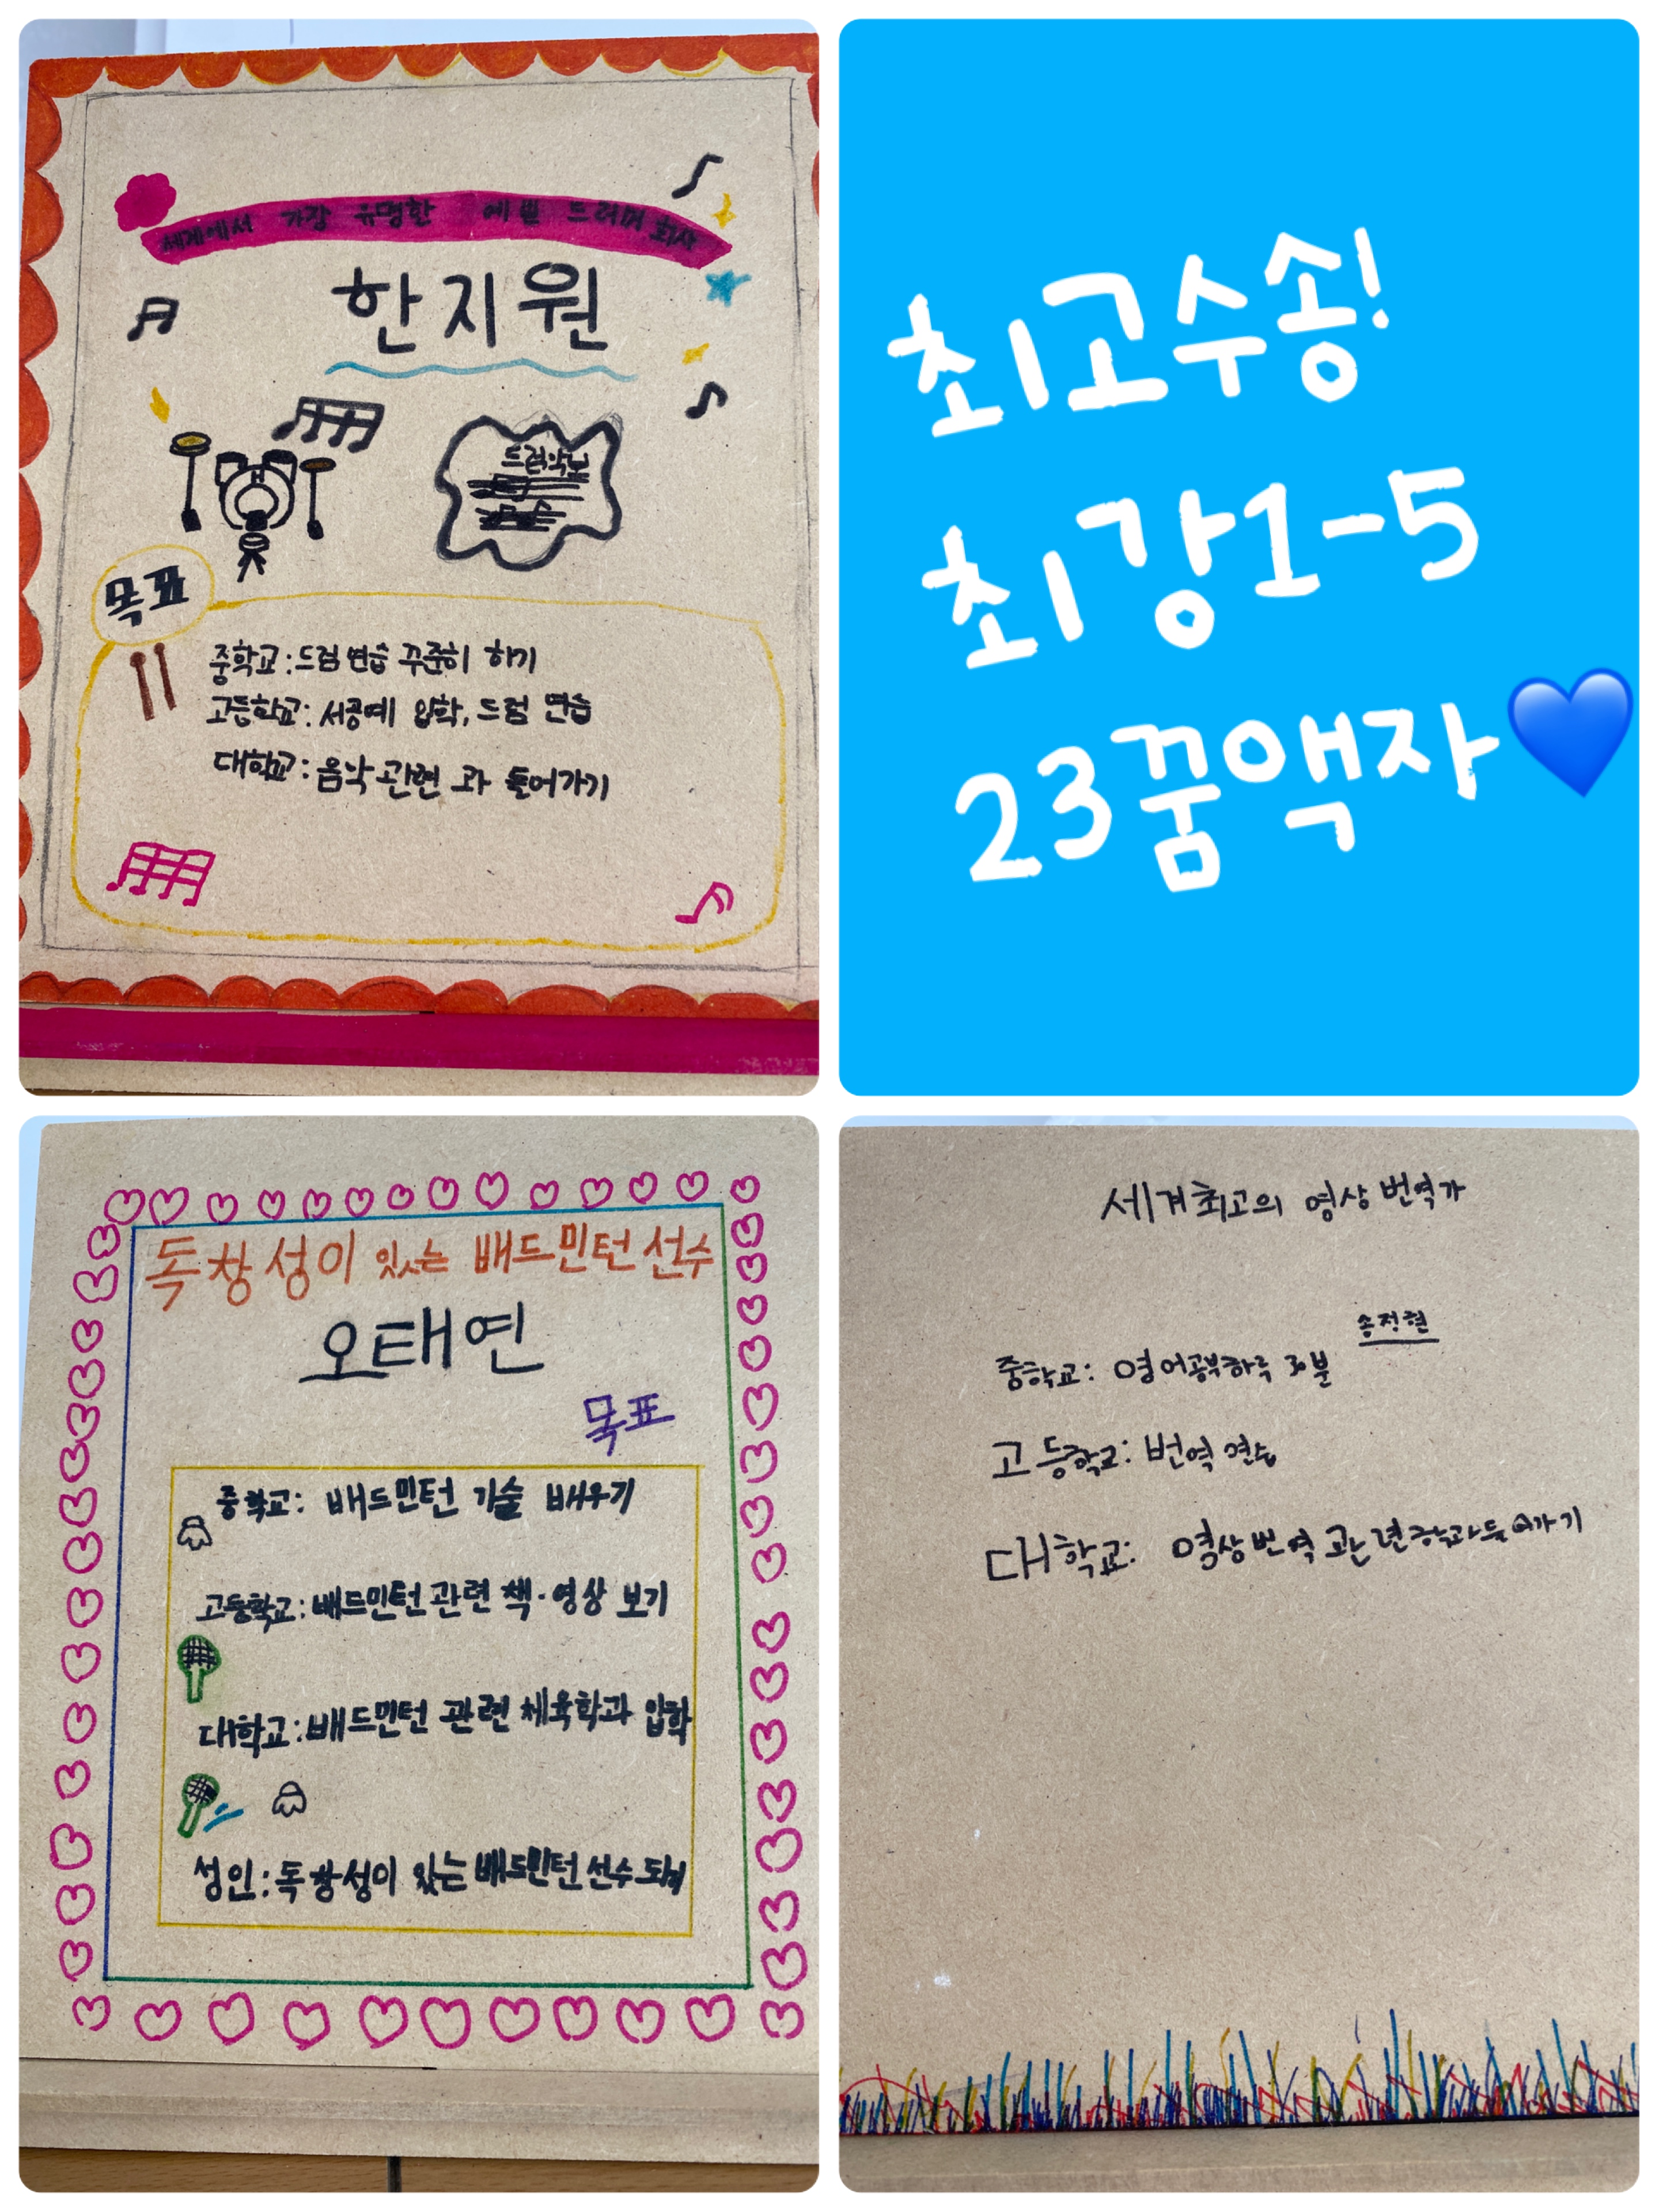 세계에서 가장 유명한 예쁜 드러머 회사
한지원
드럼악보
목표
중학교:드럼 연습 꾸준히 하기
고등학교: 서공예 입학, 드럼 연습
대학교: 음악 관련 과 들어가기
최고수송!
최강1-5
23꿈액자💙
독창성이 있는 배드민턴 선수
오태연
목표
중학교: 배드민턴 기술 배우기
고등학교: 배드민턴 관련 책·영상 보기
대학교: 배드민턴 관련 체육학과 입학
성인: 독창성이 있는 배드민턴 선수 되기
세계최고의 영상 번역가
송정현
중학교: 영어공부하루 30분
고등학교: 번역 연습
대학교: 영상 번역 관련학과들어가기